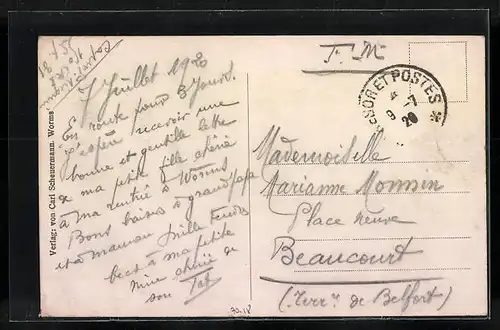 Verlag: von Carl Scheuermann. Worms
7 Juillet 1920
En route pour 3 jours.
J'espère recevoir une
bonne et gentille lettre
de ma petite fille chérie
à ma rentrée à Worms
Bons baisers à grandpapa
et à maman Mille tendres
becs à ma petite
mine chérie de
son Tat
T. M.
TRESOR ET POSTES *
9 - 7
20
Mademoiselle
Marianne Monnin
Place neuve
Beaucourt
(Terr^re de Belfort)